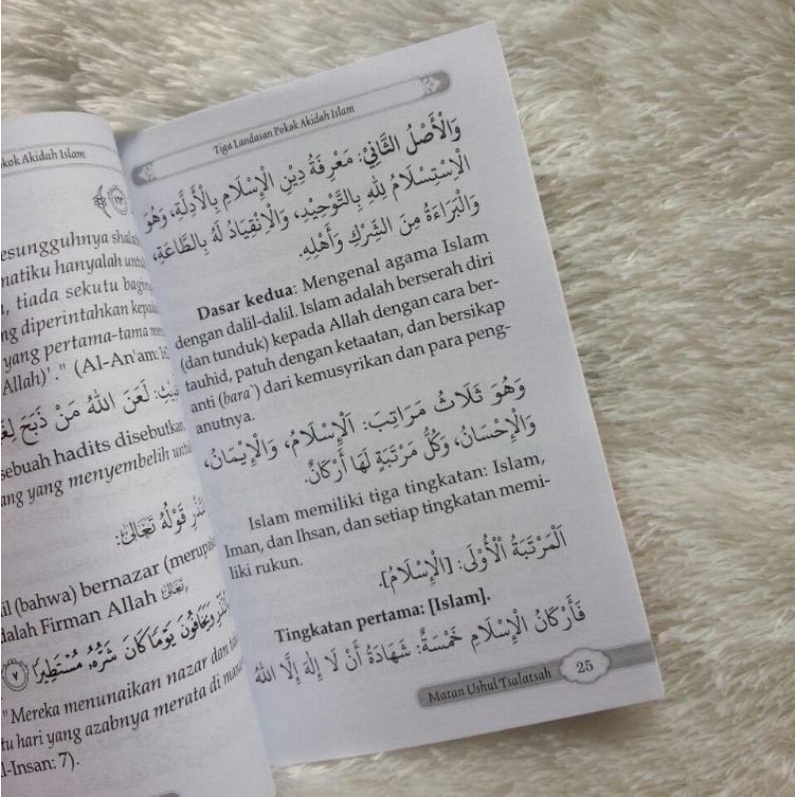 kok Akidah Islam
﴿١٦٣﴾
esungguhnya shala
matiku hanyalah untu
, tiada sekutu bagin
ng diperintahkan kepada
yang pertama-tama me
Allah)'." (Al-An'am: 16
لَعَنَ اللهُ مَنْ ذَبَحَ لِغَ
sebuah hadits disebutkan
ang yang menyembelih untu
قَوْلُهُ تَعَالَىٰ:
il (bahwa) bernazar (merupa
dalah Firman Allah
وَيَخَافُونَ يَوْمًا كَانَ شَرُّهُۥ مُسْتَطِيرًا ﴿٧﴾
"Mereka menunaikan nazar dan ta
tu hari yang azabnya merata di mana
l-Insan: 7).
Tiga Landasan Pokok Akidah Islam
وَالْأَصْلُ الثَّانِيْ: مَعْرِفَةُ دِيْنِ الْإِسْلَامِ بِالْأَدِلَّةِ، وَهُوَ
الْاِسْتِسْلَامُ لِلهِ بِالتَّوْحِيْدِ، وَالْاِنْقِيَادُ لَهُ بِالطَّاعَةِ،
وَالْبَرَاءَةُ مِنَ الشِّرْكِ وَأَهْلِهِ.
Dasar kedua: Mengenal agama Islam
dengan dalil-dalil. Islam adalah berserah diri
(dan tunduk) kepada Allah dengan cara ber-
tauhid, patuh dengan ketaatan, dan bersikap
anti (bara`) dari kemusyrikan dan para peng-
anutnya.
وَهُوَ ثَلَاثُ مَرَاتِبَ: اَلْإِسْلَامُ، وَالْإِيْمَانُ،
وَالْإِحْسَانُ، وَكُلُّ مَرْتَبَةٍ لَهَا أَرْكَانٌ.
Islam memiliki tiga tingkatan: Islam,
Iman, dan Ihsan, dan setiap tingkatan memi-
liki rukun.
اَلْمَرْتَبَةُ الْأُوْلَى: [الْإِسْلَامُ].
Tingkatan pertama: [Islam].
فَأَرْكَانُ الْإِسْلَامِ خَمْسَةٌ: شَهَادَةُ أَنْ لَا إِلٰهَ إِلَّا اللهُ
Matan Ushul Tsalatsah 25